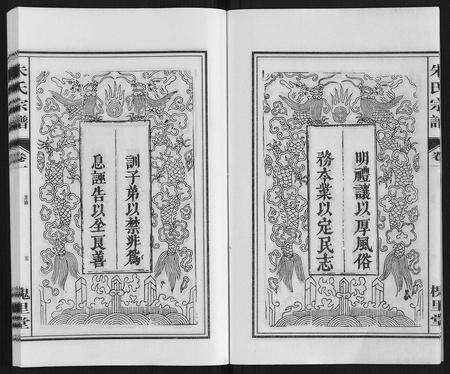 朱氏宗譜
卷一
槐里堂
明禮讓以厚風俗
務本業以定民志
訓子弟以禁非為
息誣告以全良善
朱氏宗譜
卷一
槐里堂